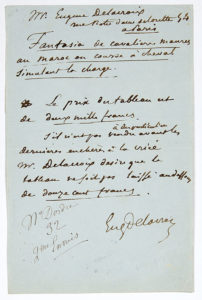 Mr Eugene Delacroix
rue Notre dame de lorette 54
a paris
Fantasia de cavaliers maures
au maroc en course à cheval
simulant la charge.
Le prix du tableau est
de deux mille francs.
S'il n'est pas vendu avant les
dernieres à la criée
Mr. Delacroix desire que le
tableau ne soit pas laissé au dessous
de douze cent francs.
Eug Delacroix
No
32